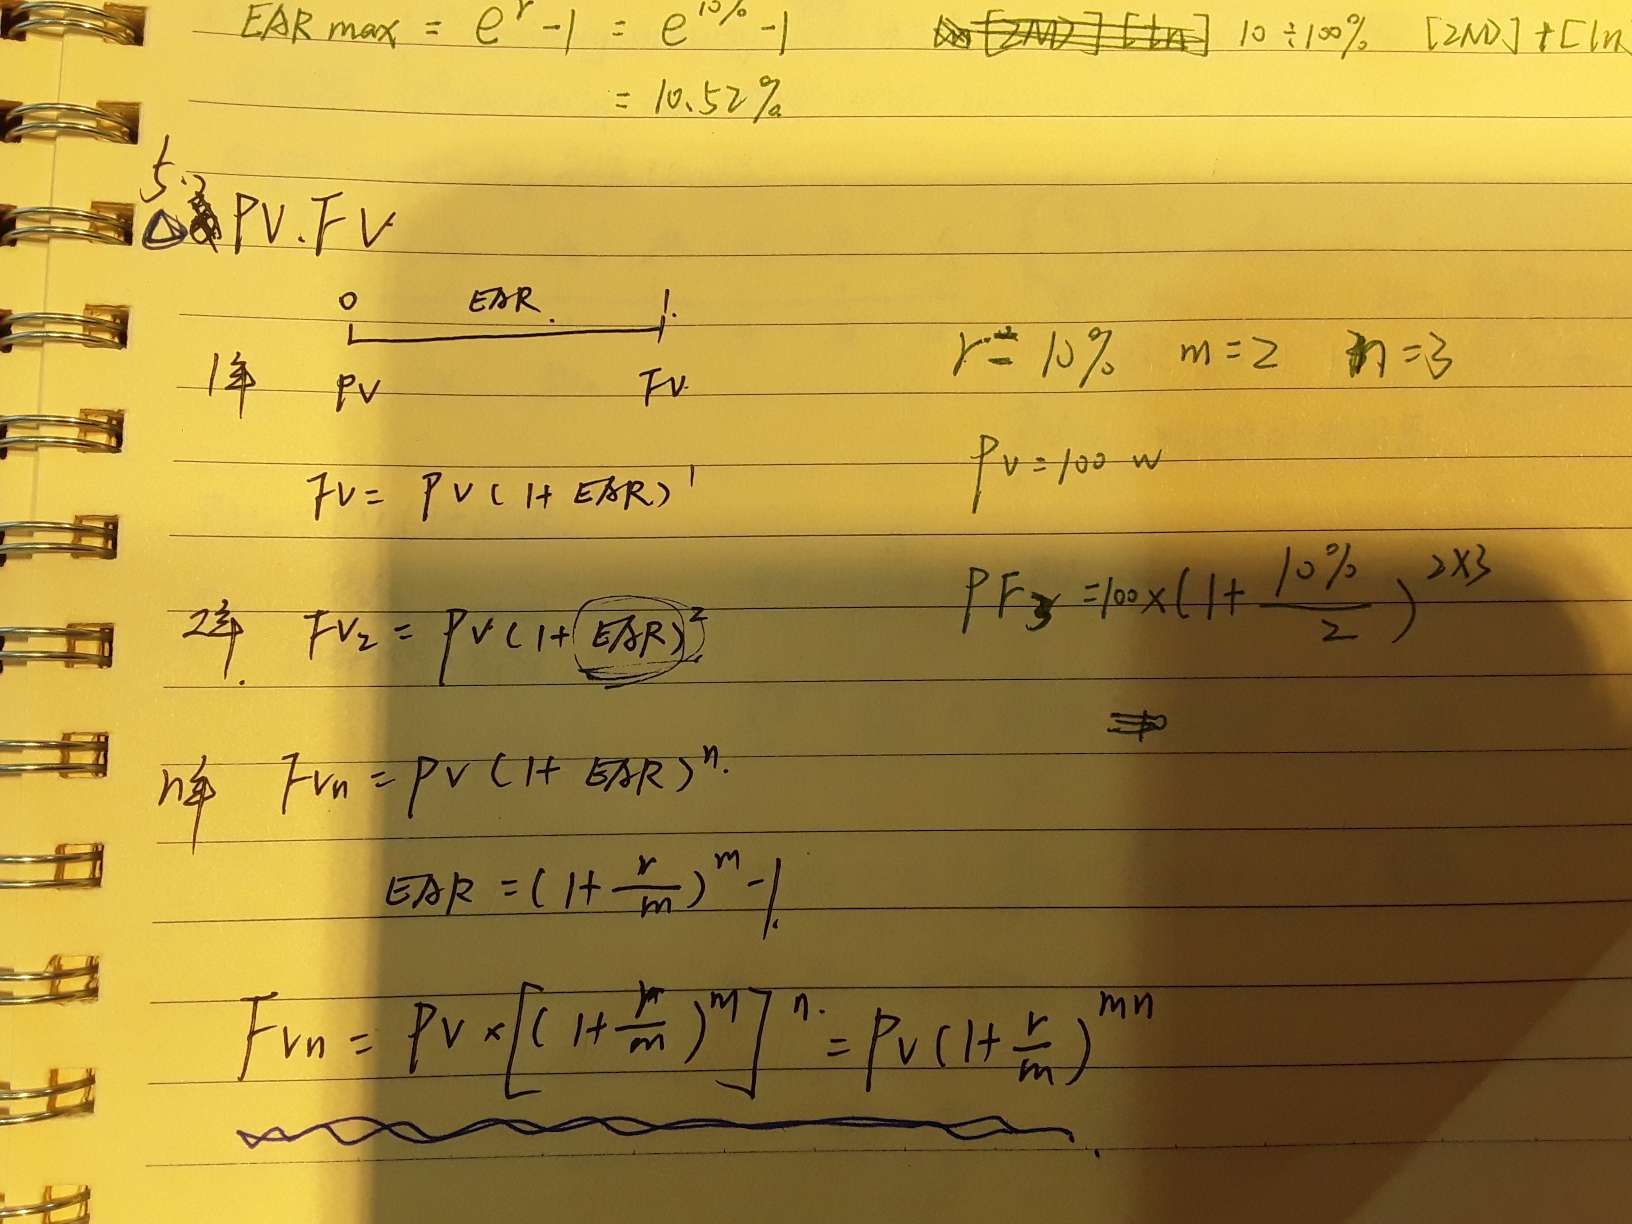 EAR max = e^r -1 = e^10% -1 10÷100% [2ND]+[ln]
= 10.52%
5.
△ PV.FV
0 EAR. 1.
1年 PV FV.
r = 10% m=2 n=3
FV = PV(1+EAR)^1
PV=100 w
2年. FV₂ = PV(1+EAR)^2
PF₃ =100×(1+10%/2)^2×3
⇒
n年 FVn = PV(1+EAR)^n.
EAR = (1+r/m)^m -1.
FVn = PV×[(1+r/m)^m]^n. = PV(1+r/m)^mn